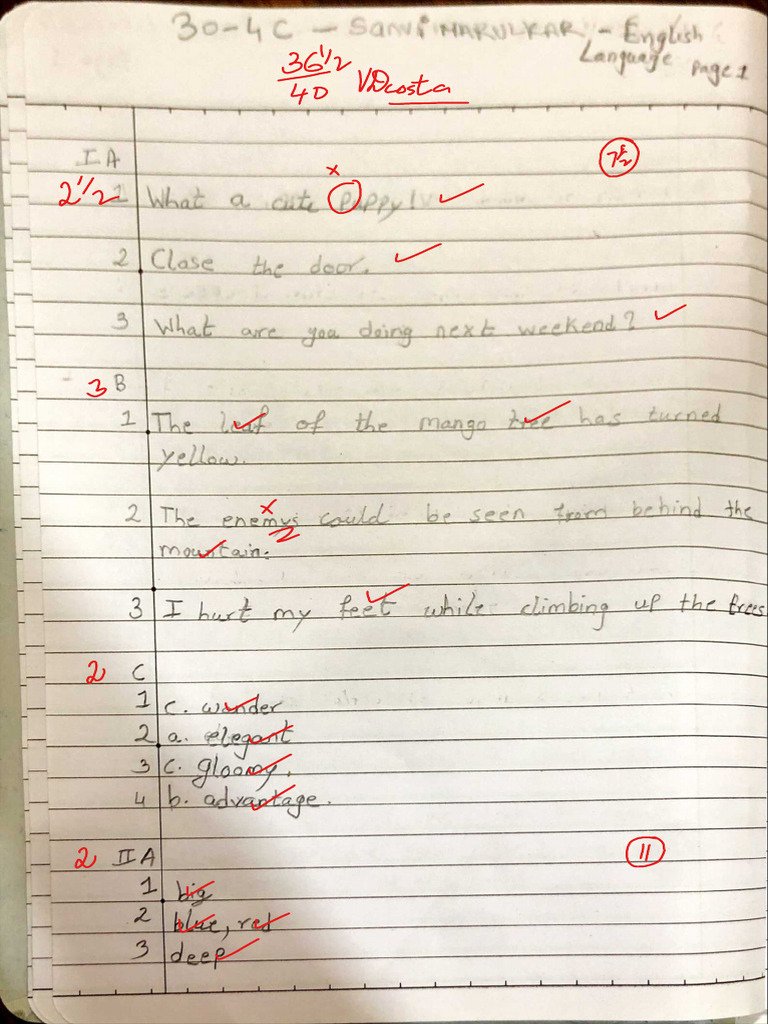 30-4C - SANVI NARULKAR - English
Language page 1
36 1/2
40 VDcosta
I A 7 1/2
x
2 1/2 1 What a cute puppy! ✓
2 Close the door. ✓
3 What are you doing next weekend? ✓
3 B
1 The leaf of the mango tree has turned
yellow.
x
2 The enemys could be seen from behind the
mountain.
3 I hurt my feet while climbing up the trees
2 C
1 c. wander
2 a. elegant
3 c. gloomy.
4 b. advantage.
2 II A 11
1 big
2 blue, red
3 deep